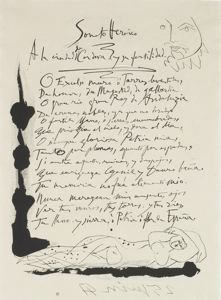 Soneto Heroico
A la ciudad de Cordova y su fertilidad.
O Excelso muro, o Torres levantadas
De honor, de Magestad, de gallardia
O gran rio, gran Rey de Andaluzia
De arenas nobles, ya que no
O fertil llano, o sierras
Que el cielo, y dora el dia
O siempre gloriosa Patria mia,
Tanto por plumas, quanto por espadas,
Si entre aquellas ruinas, y despojos
Que enriqueze Genil y Dauro baña
Tu memoria no fue alimento mio.
Nunca merezcan mis ausentes ojos
Ver tus muros, tus torres, y tu rio,
Tu llano y sierra, o Patria, o flor de España